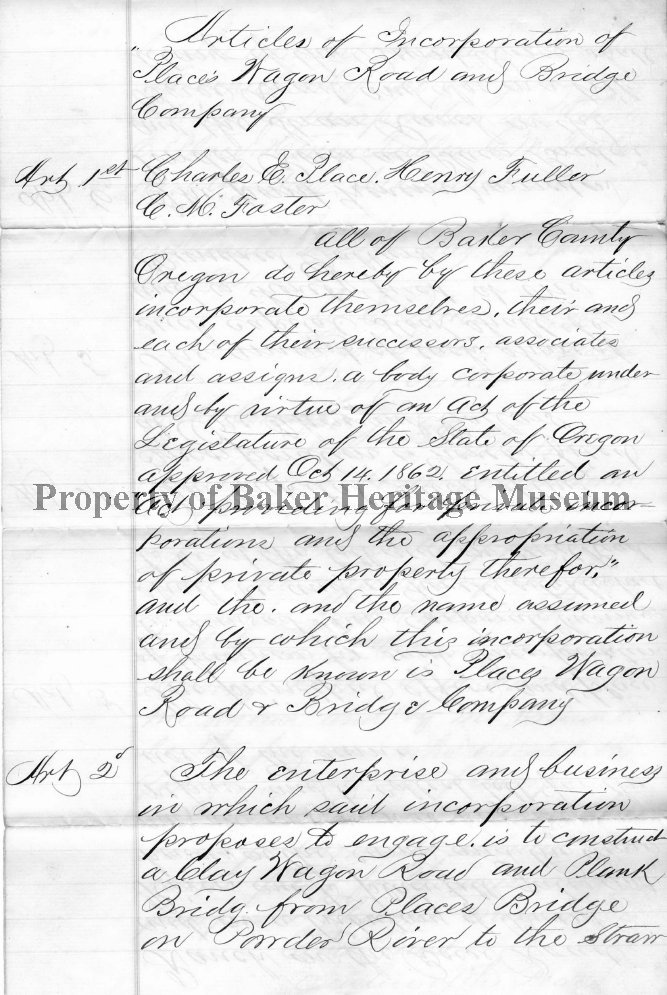 " Articles of Incorporation of
Places Wagon Road and Bridge
Company
Art 1st Charles E. Place. Henry Fuller
C. M. Foster
all of Baker County
Oregon do hereby by these articles
incorporate themselves, their and
each of their successors, associates
and assigns, a body corporate under
and by virtue of an act of the
Legislature of the State of Oregon
approved Oct 14. 1862. entitled an
Property of Baker Heritage Museum
act providing for private incor-
porations and the appropriation
of private property therefor,"
and the. and the name assumed
and by which this incorporation
shall be known is Places Wagon
Road & Bridge Company
Art 2d The enterprise and business
in which said incorporation
proposes to engage. is to construct
a Clay Wagon Road and Plank
Bridg from Places Bridge
on Powder River to the Straw